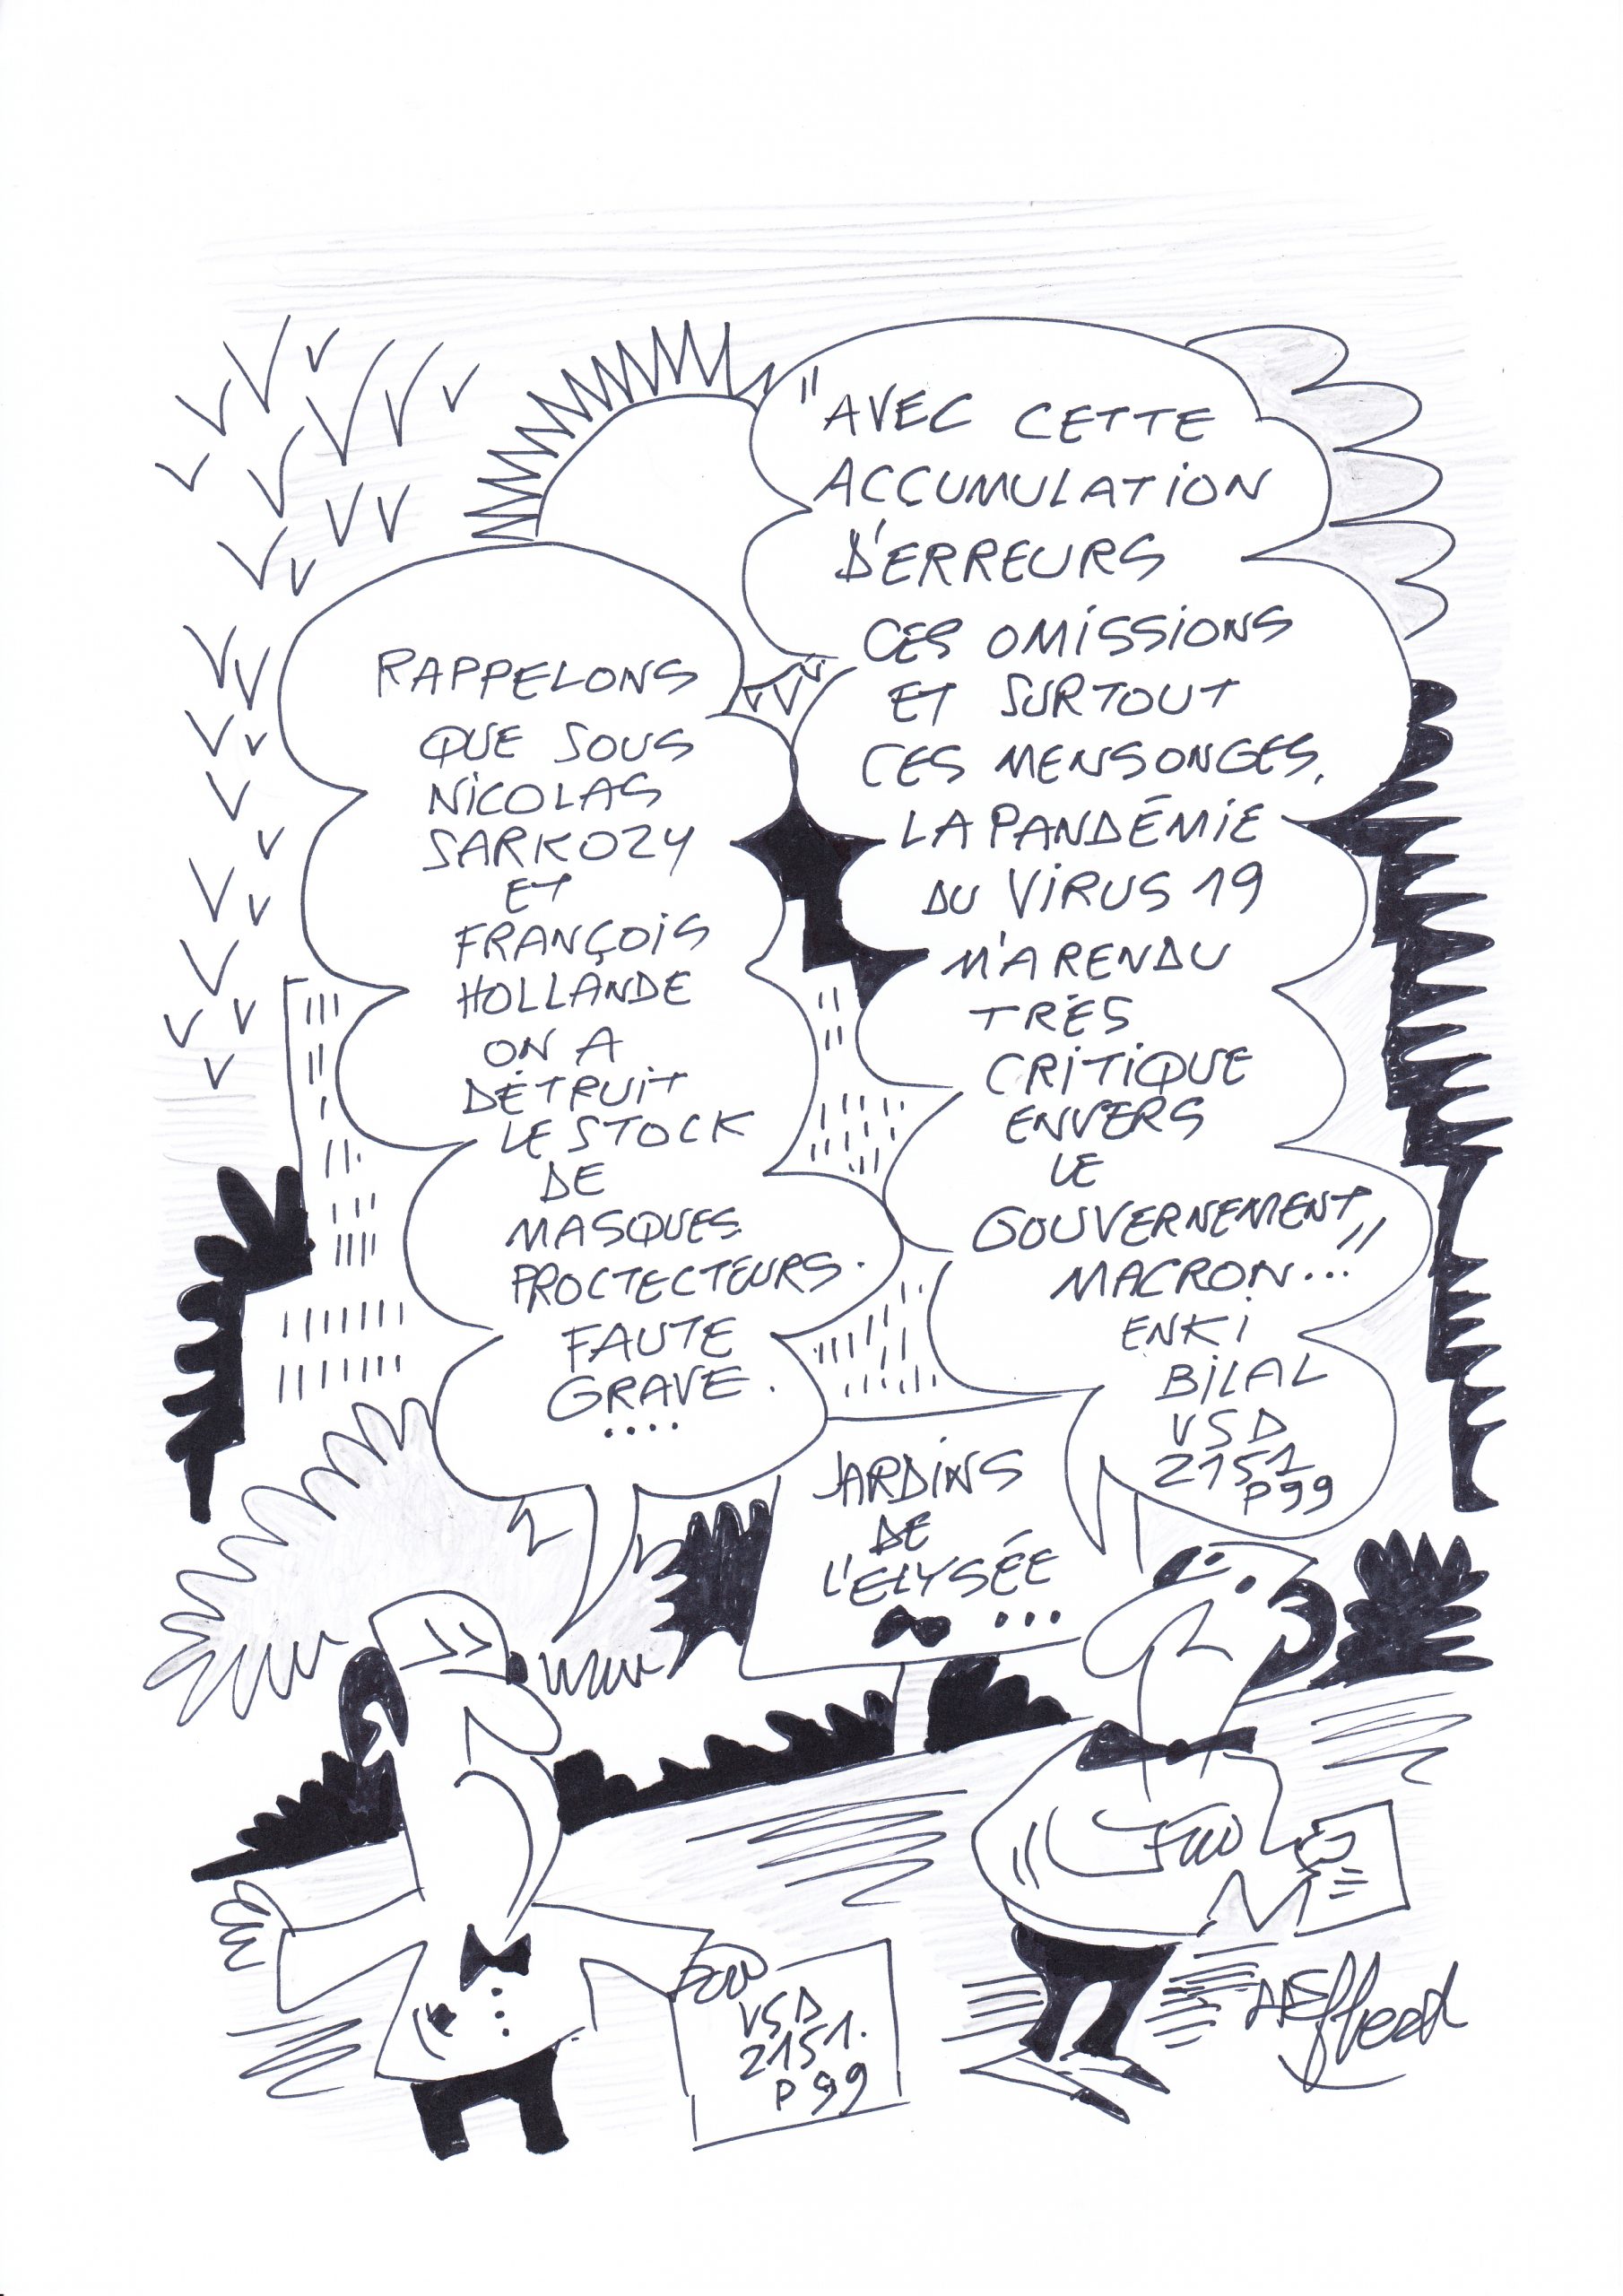 "AVEC CETTE
ACCUMULATION
D'ERREURS
CES OMISSIONS
ET SURTOUT
CES MENSONGES,
LA PANDÉMIE
DU VIRUS 19
M'A RENDU
TRÈS
CRITIQUE
ENVERS
LE
GOUVERNEMENT
MACRON..."
ENKI
BILAL
VSD
2151
P 99
RAPPELONS
QUE SOUS
NICOLAS
SARKOZY
ET
FRANÇOIS
HOLLANDE
ON A
DÉTRUIT
LE STOCK
DE
MASQUES
PROCTECTEURS.
FAUTE
GRAVE.
....
JARDINS
DE
L'ELYSÉE
...
VSD
2151.
P 99